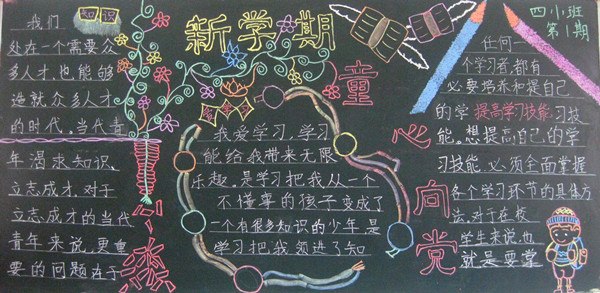 新学期
我们
知识
处在一个需要众
多人才,也能够
造就众多人才
的时代。当代青
年渴求知识、
立志成才。对于
立志成才的当代
青年来说,更重
要的问题在于
我爱学习,学习
能给我带来无限
乐趣。是学习把我从一个
不懂事的孩子变成了
一个有很多知识的少年,是
学习把我领进了知
童
心
向
党
四小班
第1期
任何一
个学习者,都有
必要培养和提自己
的学 提高学习技能 习技
能。想提高自己的学
习技能,必须全面掌握
各个学习环节的具体方
法。对于在校
学生来说,也
就是要掌